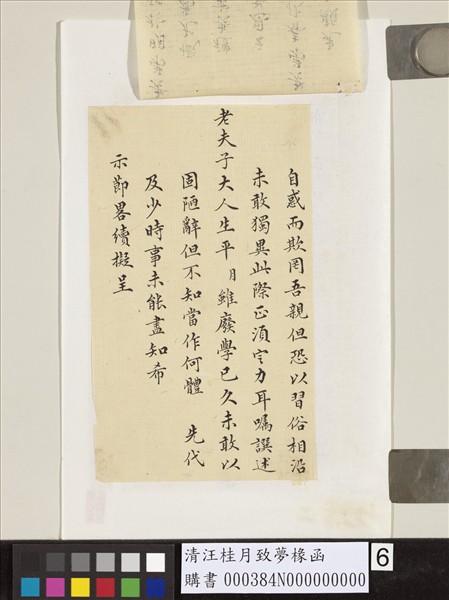 自惑而欺罔吾親但恐以習俗相沿
未敢獨異此際正湏㝎力耳囑譔述
老夫子大人生平月雖廢學已久未敢以
固陋辭但不知當作何體　先代
及少時事未能盡知希
示節畧續擬呈
清汪桂月致夢椽函
購書 000384N000000000
6